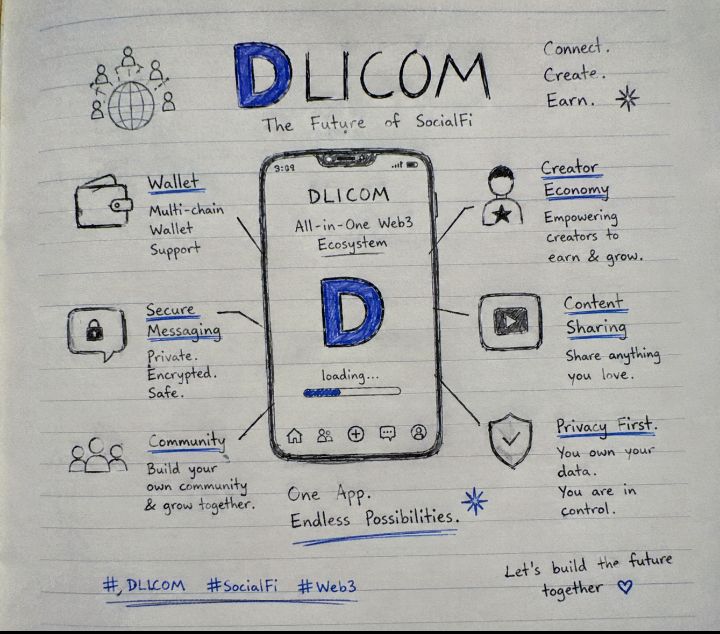 DLICOM
The Future of SocialFi
Connect.
Create.
Earn.
Wallet
Multi-chain
Wallet
Support
Secure
Messaging
Private.
Encrypted.
Safe.
Community
Build your
own community
& grow together.
3:09
DLICOM
All-in-One Web3
Ecosystem
D
loading...
Creator
Economy
Empowering
creators to
earn & grow.
Content
Sharing
Share anything
you love.
Privacy First.
You own your
data.
You are in
control.
One App.
Endless Possibilities.
#DLICOM #SocialFi #Web3
Let's build the future
together